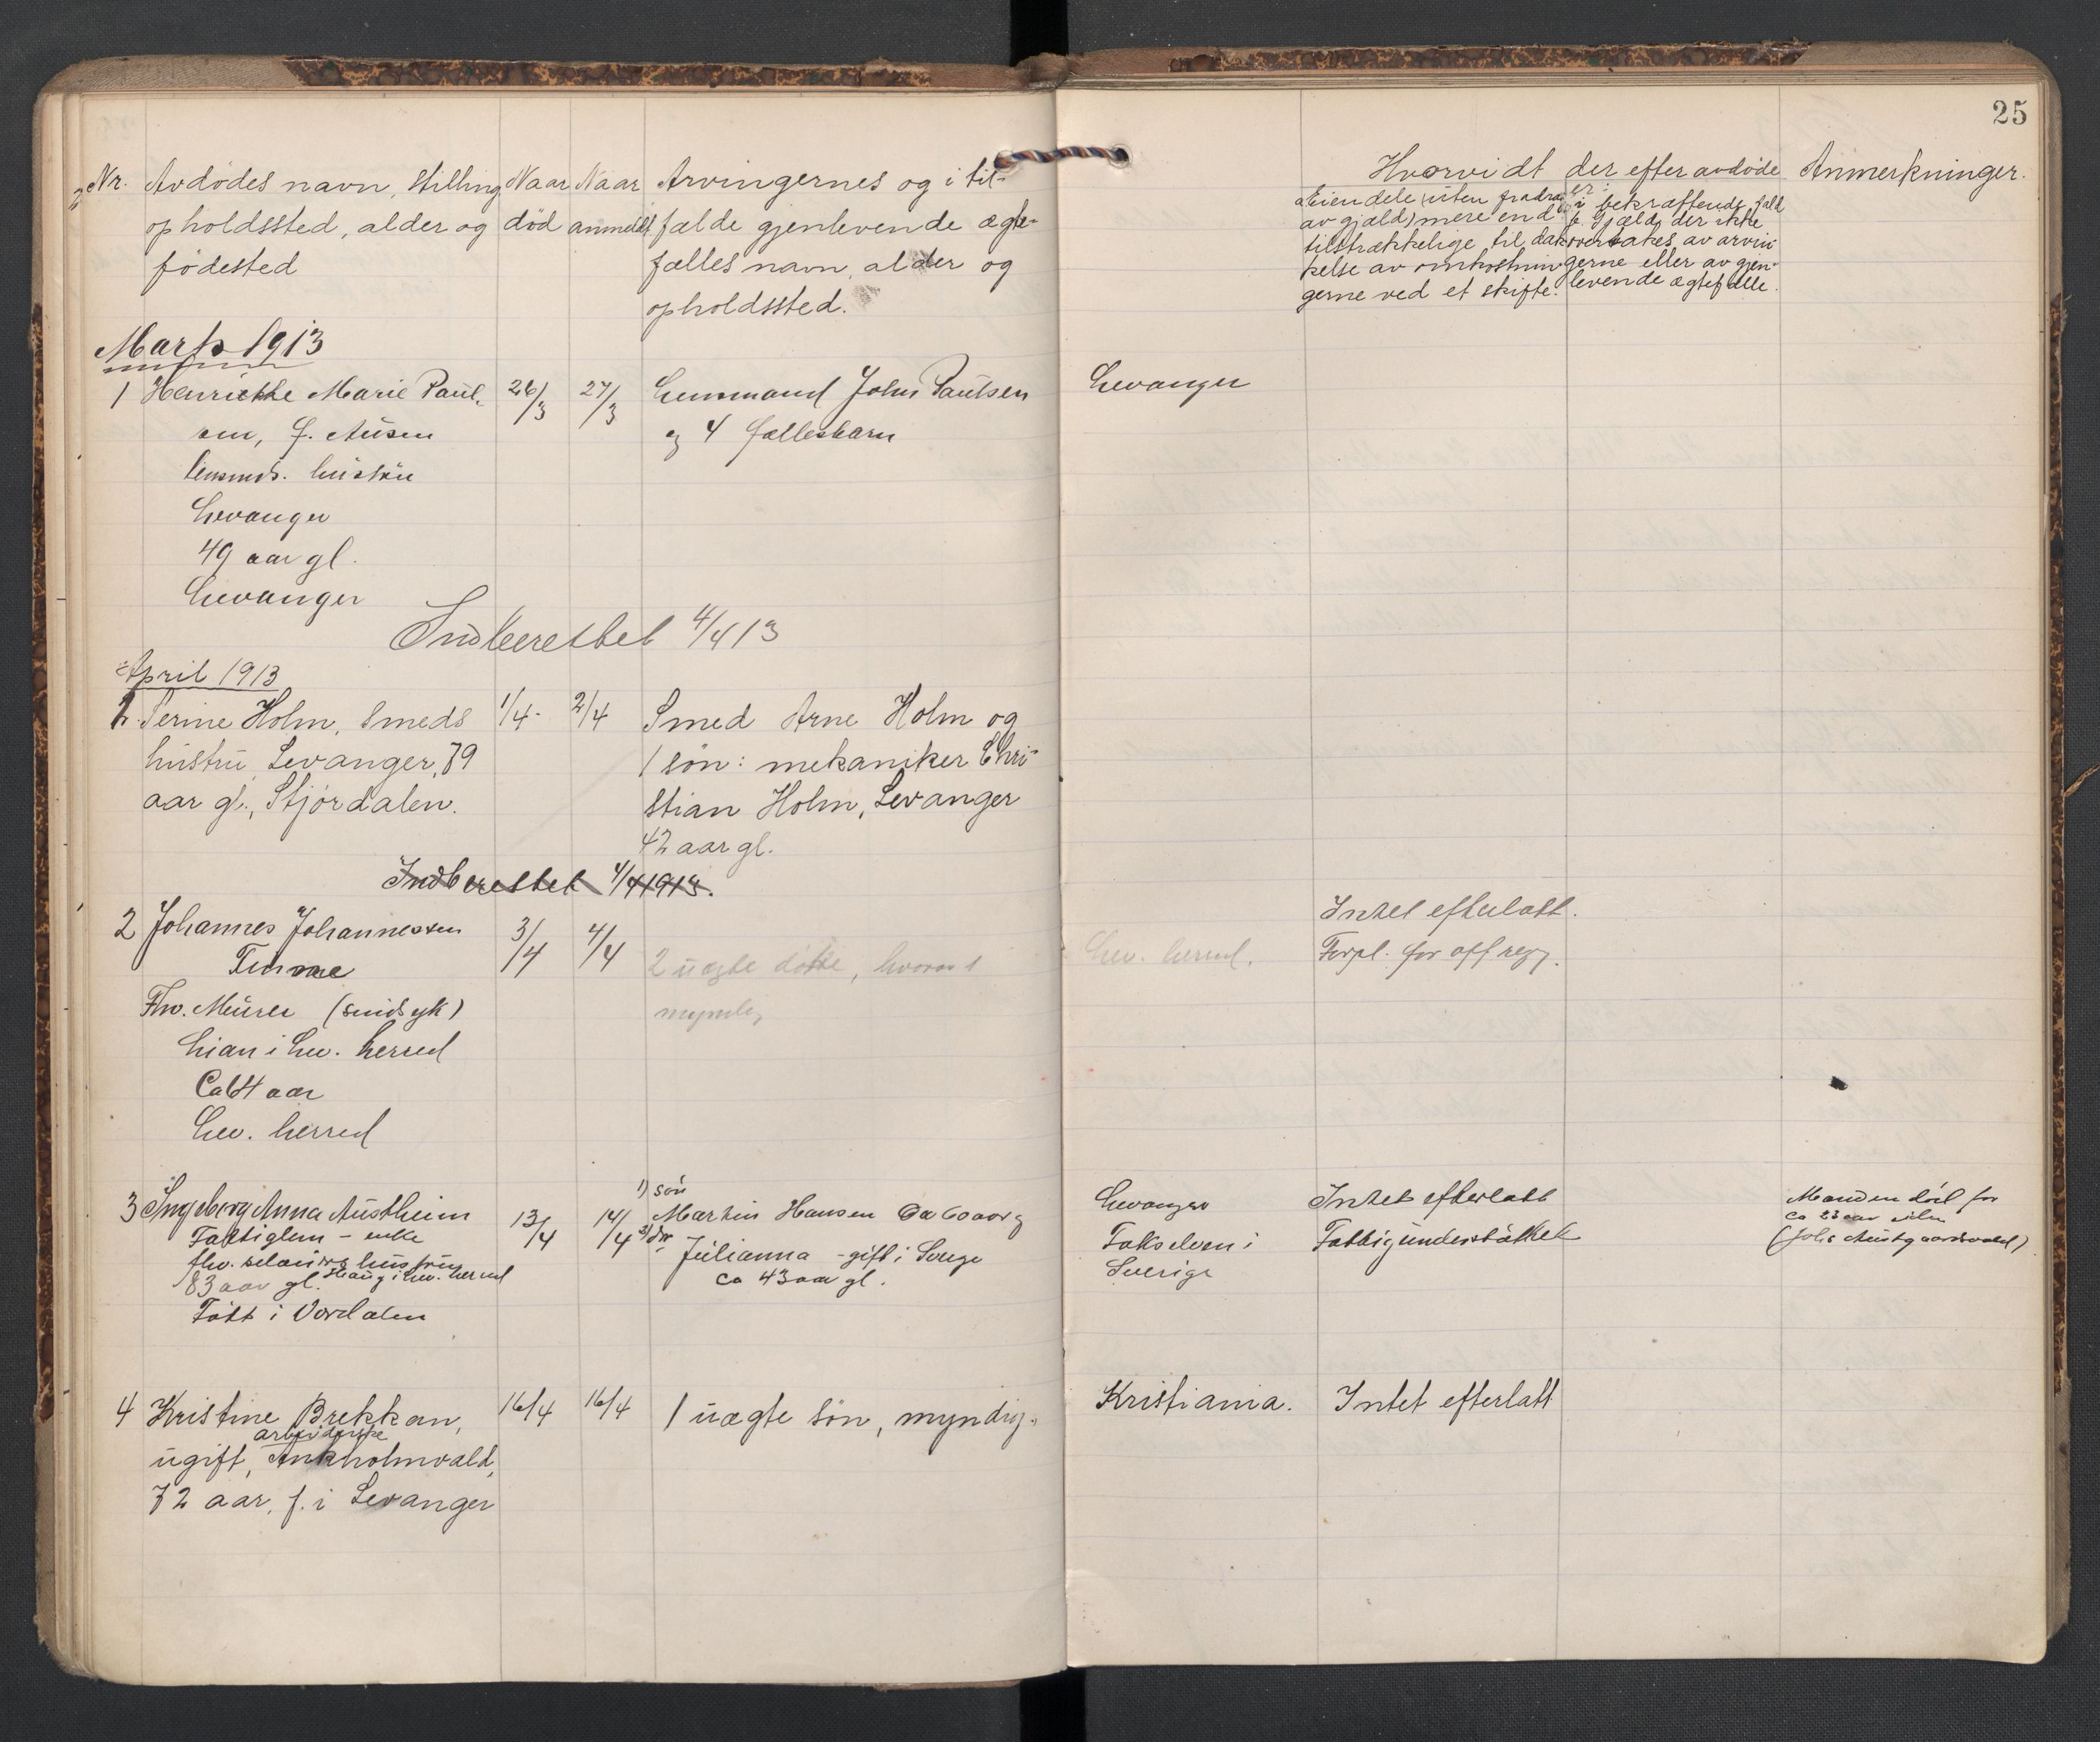 25
Nr. Avdödes navn, stilling Naar Naar Arvingernes og i til-
opholdssted, alder og död anmeldt fælde gjenlevende ægte-
födested
fælles navn, alder og
opholdssted.
Hvorvidt der efter avdöde
er:
Eiendele (uten fradrag
av gjæld) mere end
tilstrækkelige til dæk-
kelse av omkostnin-
gerne ved et skifte.
i bekræftende fald
Gjæld, der ikke
overtakes av arvin-
gerne eller av gjen-
levende ægtefælle.
Anmerkninger.
Marts 1913
1 Henriette Marie Paul- 26/3 27/3 Lensmand John Paulsen Levanger
sen, f. og 4 fællesbarn
lensmds. hustru
Levanger
49 aar gl.
Levanger
Indberettet 4/4 13
April 1913
1. Serine Holm, Smeds 1/4 - 2/4 Smed Arne Holm og
hustru, Levanger, 79 1 sön: mekaniker Chri-
aar gl., Stjördalen. stian Holm, Levanger
42 aar gl.
Indberettet 4/4 1913.
2 Johannes Johannessen 3/4 4/4 Intet efterlatt.
2 uægte dötre, hvorav 1 Lev. herred. Forpl. for off regn.
Fhv. Murer (sindsyk) myndig
i Lev. herred
Ca 64 aar
Lev. herred
3 Ingeborg Anna Austheim 13/4 14/4 1) sön
Martin Hansen Ca 60 aar g Levanger Intet efterlatt Manden död for
Fattiglem - enke 2) dtr Julianna - gift i Sverge i Fattigunderstöttet ca 23 aar siden
fhv. hustru ca 43 aar gl. Sverige
83 aar gl. Haug i Lev. herred
Född i Værdalen
4 Kristine Brekkan, 16/4 16/4 1 uægte sön, myndig. Kristiania. Intet efterlatt
arbeiderske
ugift,
72 aar, f. i Levanger